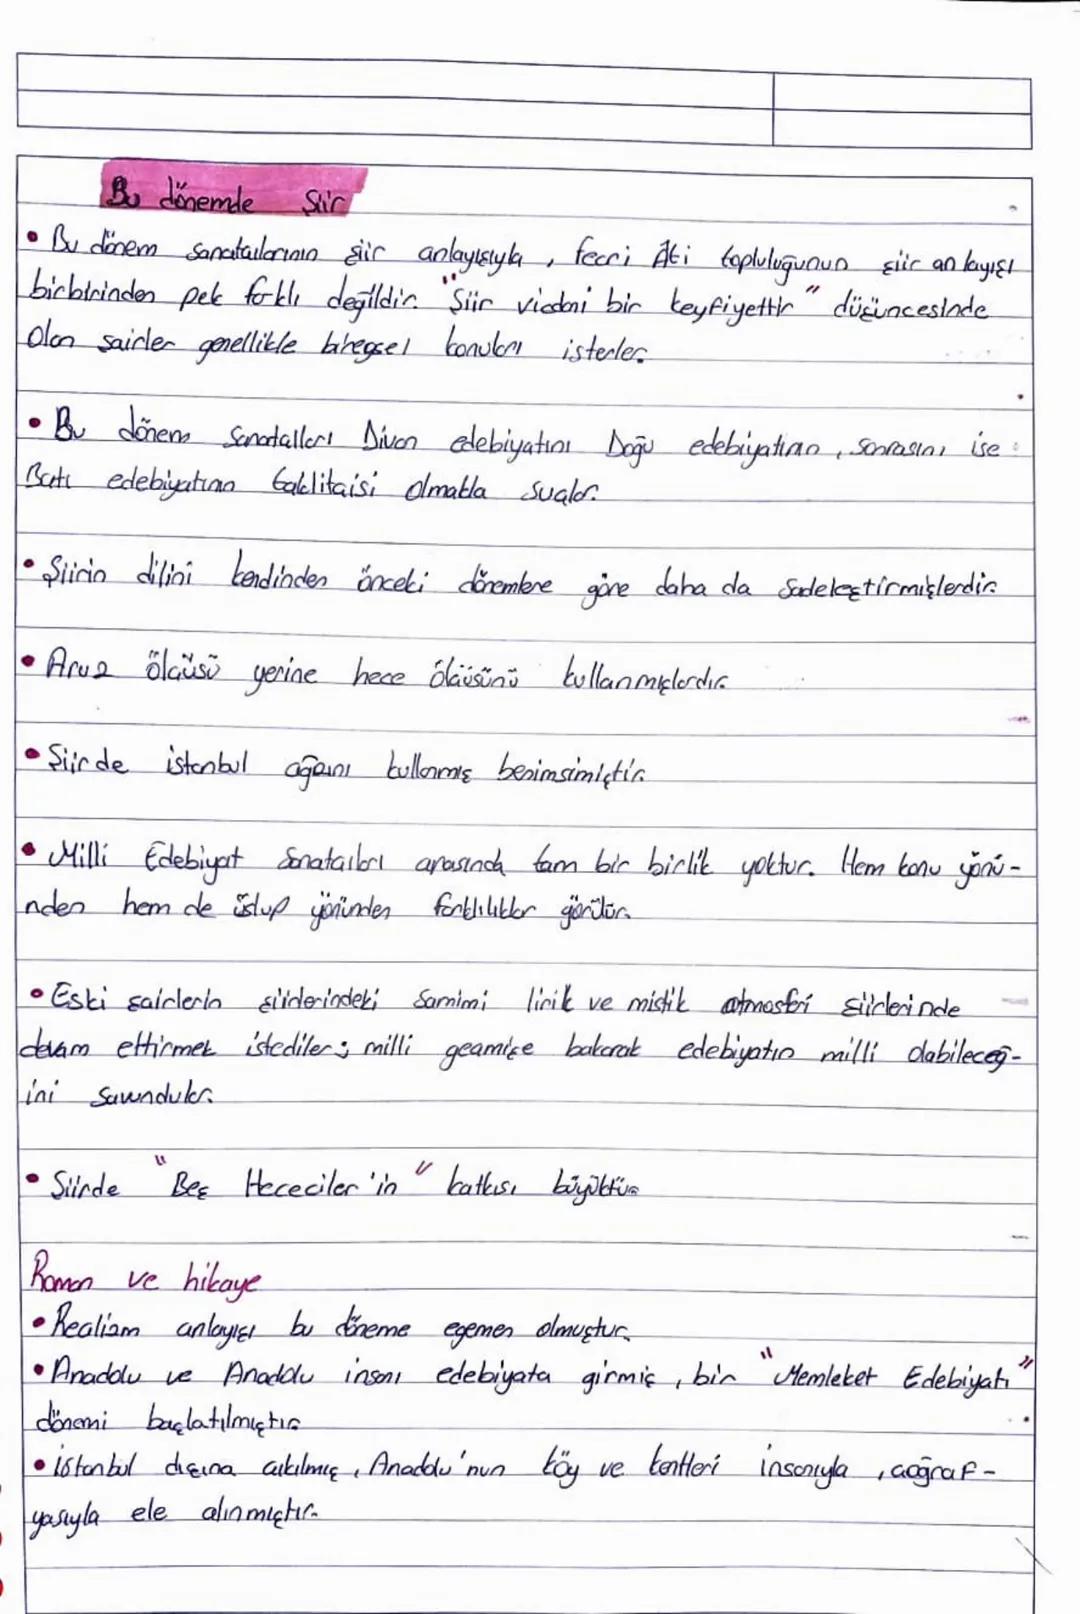 Bu dönemde Şiir
• Bu dönem sanatçılarının şiir anlayışıyla, fecri Âti topluluğunun şiir anlayışı
birbirinden pek farklı değildir. "Şiir vicdani bir keyfiyettir" düşüncesinde
olan şairler genellikle bireysel konuları isterler.
• Bu dönem Sanatçıları Divan edebiyatını Doğu edebiyatının, sonrasını ise
Batı edebiyatının taklitçisi olmakla suçlar.
• Şiirin dilini kendinden önceki dönemlere göre daha da Sadeleştirmişlerdir.
• Aruz ölçüsü yerine hece ölçüsünü kullanmışlardır.
• Şiirde istanbul ağzını kullanmış benimsimiştir.
• Milli Edebiyat Sanatçıları arasında tam bir birlik yoktur. Hem konu yönü-
nden hem de üslup yönünden farklılıklar görülür.
• Eski şairlerin şiirlerindeki Samimi lirik ve mistik atmosferi şiirlerinde
devam ettirmek istediler; milli geçmişe bakarak edebiyatın milli olabileceğ-
ini savundular.
• Şiirde "Beş Hececiler'in" katkısı büyüktür.
Roman ve hikaye
• Realizm anlayışı bu döneme egemen olmuştur.
• Anadolu ve Anadolu insanı edebiyata girmiş, bir "Memleket Edebiyatı"
dönemi başlatılmıştır.
• istanbul dışına çıkılmış, Anadolu'nun köy ve kentleri insanıyla, coğraf-
yasıyla ele alınmıştır.